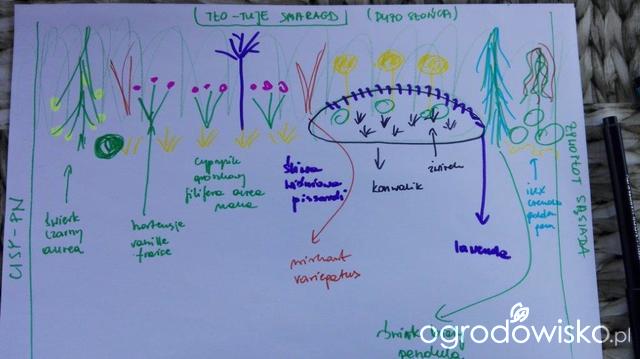 TŁO-TUJE SMARAGD (DUŻO SŁOŃCA)
CISY-PN
ŻYWOPŁOT SĄSIADA
świerk
czarny
aurea
hortensje
vanille
fraise
cyprysik
groszkowy
filifera aurea
nana
śliwa
wiśniowa
pissardi
konwalik
żwirek
miskant
variegatus
lawenda
ilex
crenata
golden
gem
świerk
pendula
ogrodowisko.pl